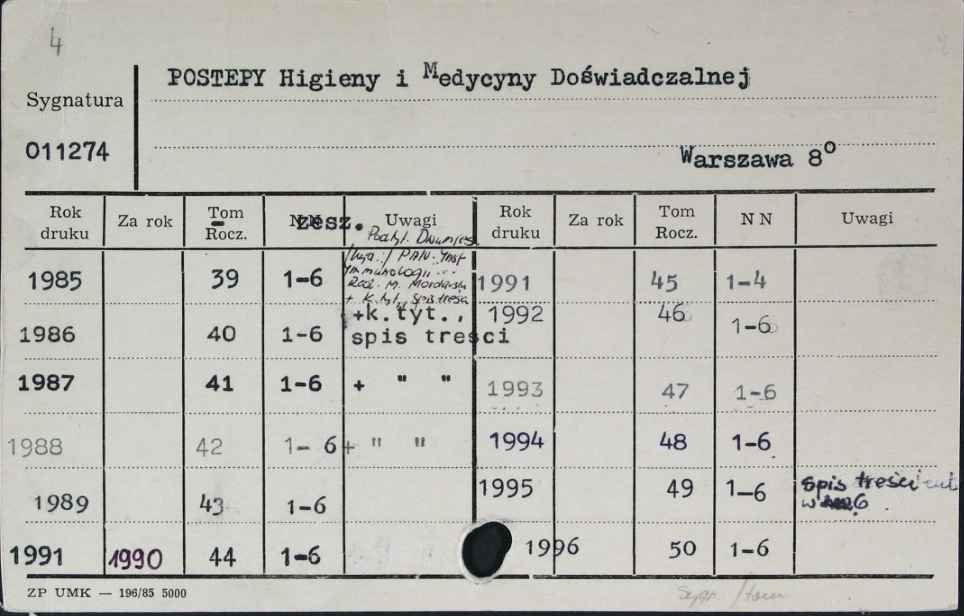 4
POSTEPY Higieny i Medycyny Doświadczalnej
Sygnatura
011274
Warszawa 8°
Rok druku Za rok Tom Rocz. N N zesz. Uwagi Rok druku Za rok Tom Rocz. N N Uwagi
1985 39 1-6 Podtyt. Dwumies.
PAN. Inst
Immunologii...
Red. M. Mordarski
+ k. tyt., spis treści
1991 45 1-4
1986 40 1-6 +k.tyt., spis treści 1992 46 1-6
1987 41 1-6 + " " 1993 47 1-6
1988 42 1-6 + " " 1994 48 1-6
1989 43 1-6 1995 49 1-6 spis treści
w 6
1991 1990 44 1-6 1996 50 1-6
ZP UMK — 196/85 5000